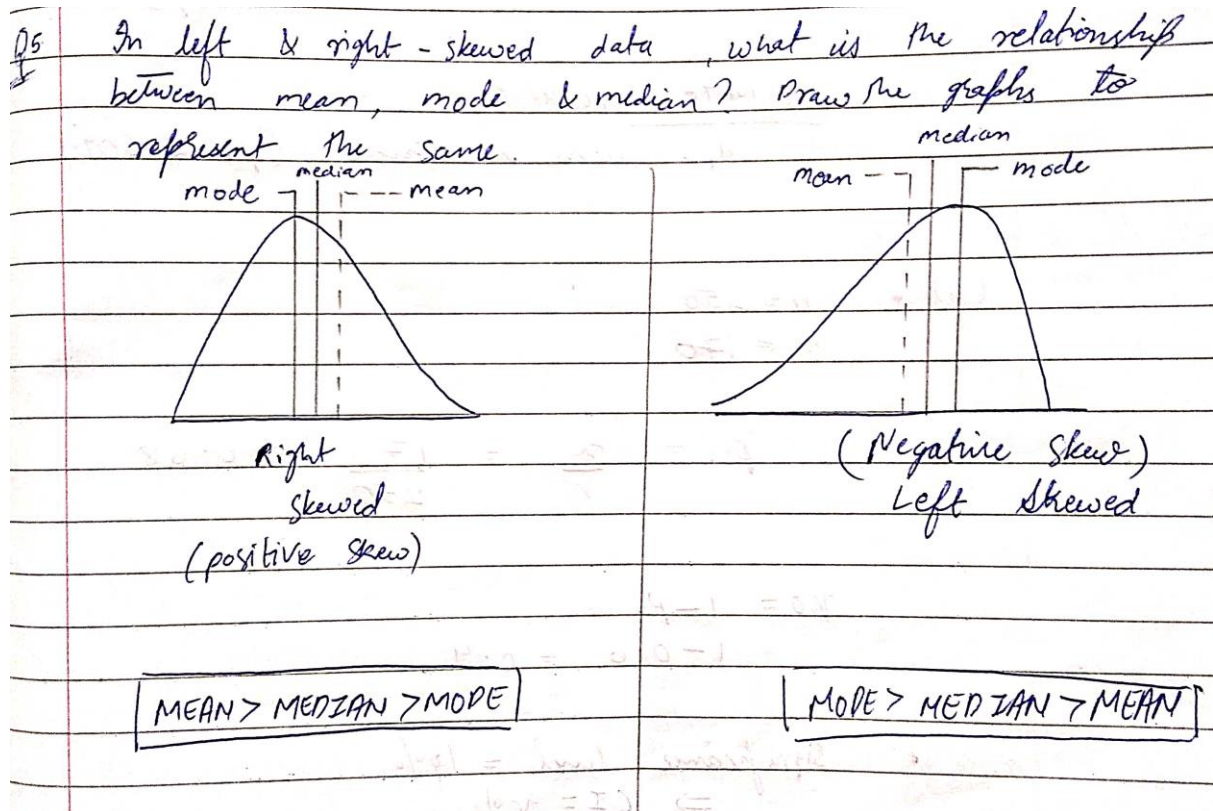 Q5 In left & right - skewed data, what is the relationship
between mean, mode & median? Draw the graphs to
represent the same.
mode median mean
Right
Skewed
(positive Skew)
MEAN > MEDIAN > MODE
mean median mode
(Negative Skew)
Left Skewed
MODE > MEDIAN > MEAN